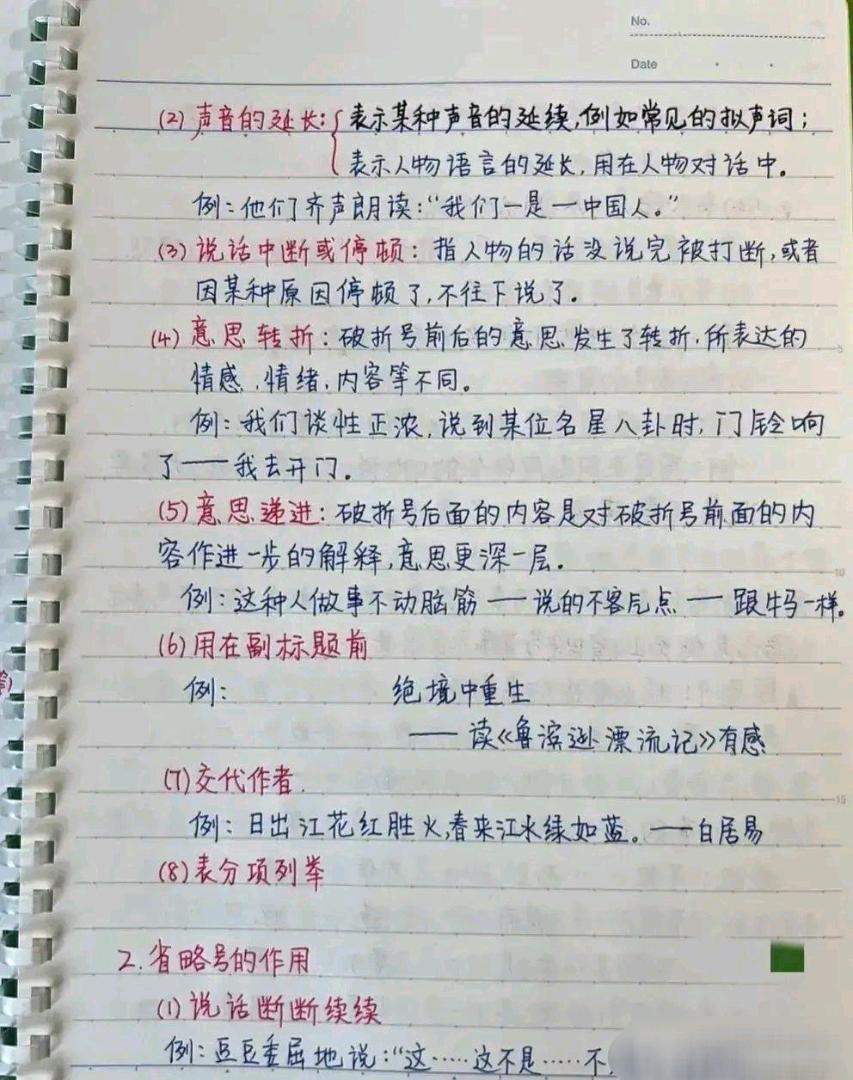 No.
Date
(2) 声音的延长:{表示某种声音的延续,例如常见的拟声词;
表示人物语言的延长,用在人物对话中。
例:他们齐声朗读:“我们—是—中国人。”
(3) 说话中断或停顿:指人物的话没说完被打断,或者
因某种原因停顿了,不往下说了。
(4) 意思转折:破折号前后的意思发生了转折,所表达的
情感、情绪、内容等不同。
例:我们谈性正浓,说到某位名星八卦时,门铃响
了——我去开门。
(5) 意思递进:破折号后面的内容是对破折号前面的内
容作进一步的解释,意思更深一层。
例:这种人做事不动脑筋——说的不客气点——跟牛马一样。
(6) 用在副标题前
例: 绝境中重生
——读《鲁滨逊漂流记》有感
(7) 交代作者.
例:日出江花红胜火,春来江水绿如蓝。——白居易
(8) 表分项列举
2. 省略号的作用
(1) 说话断断续续
例:豆豆委屈地说:“这……这不是……不
5
10
15